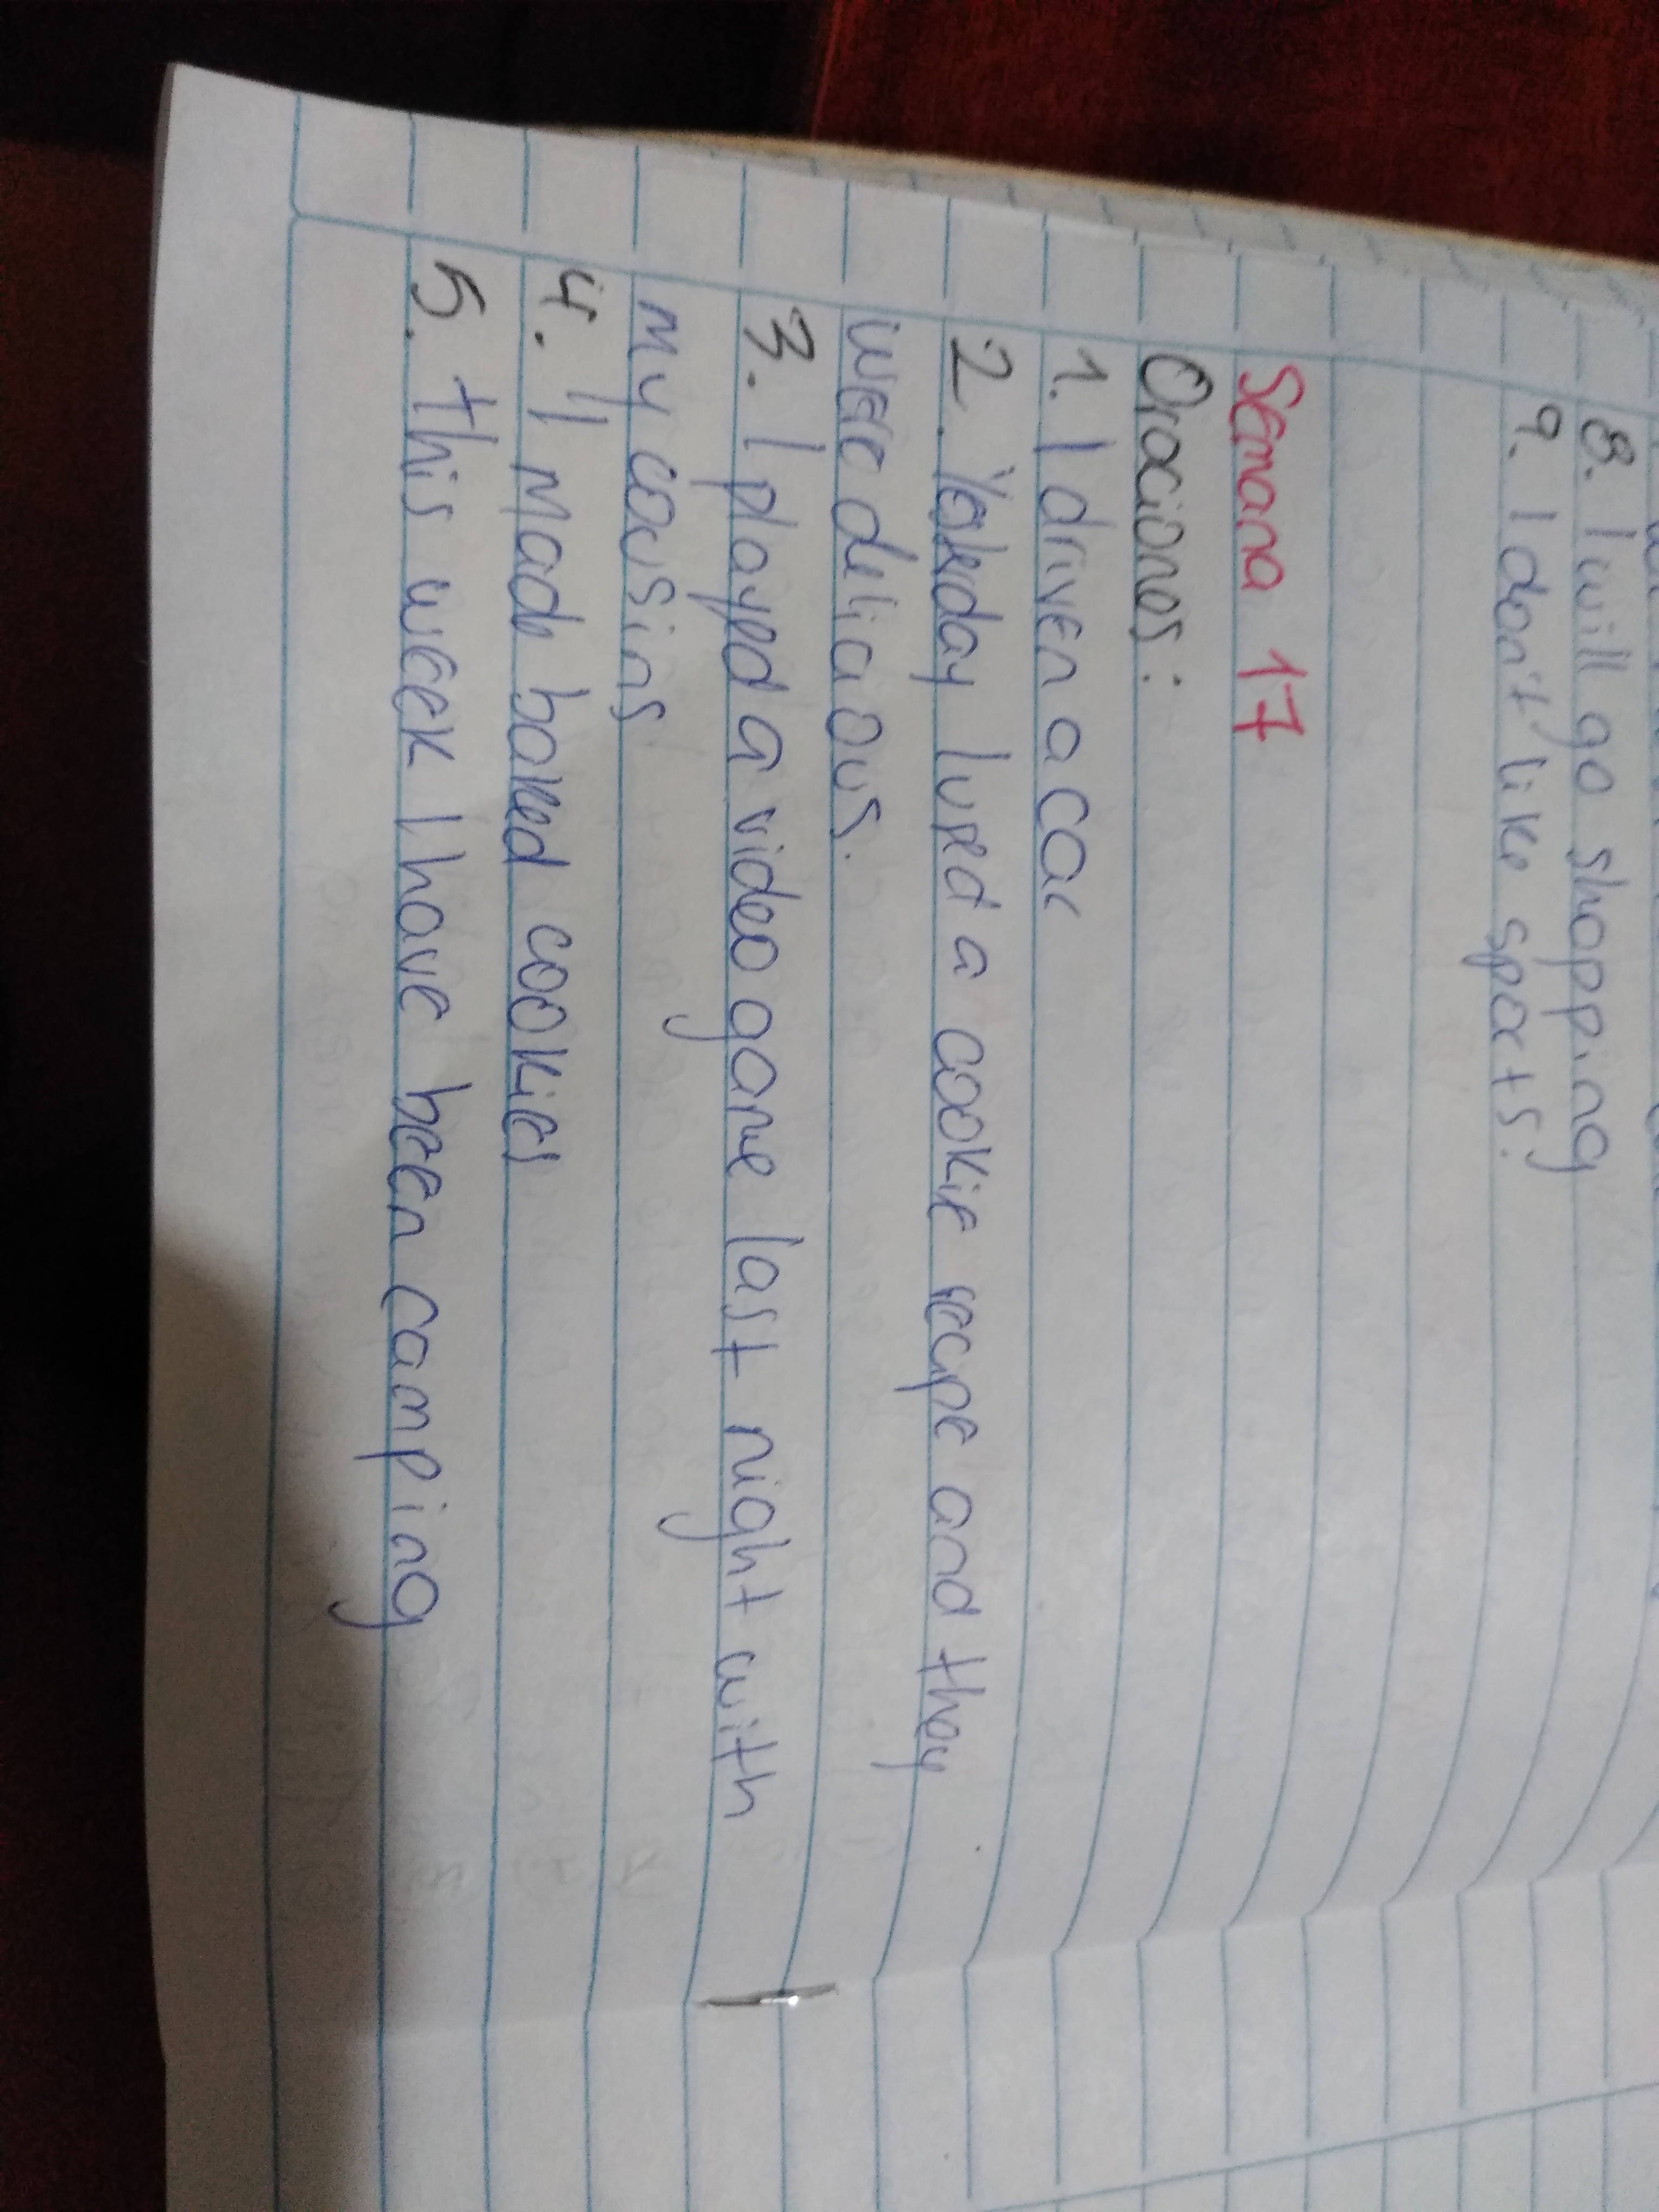 8. I will go shopping
9. I don't like sports.
Semana 17
Oraciones:
1. I driven a car
2. Yesterday I used a cookie recipe and they
were delicious.
3. I played a video game last night with
my cousins
4. I made baked cookies
5. this week I have been camping